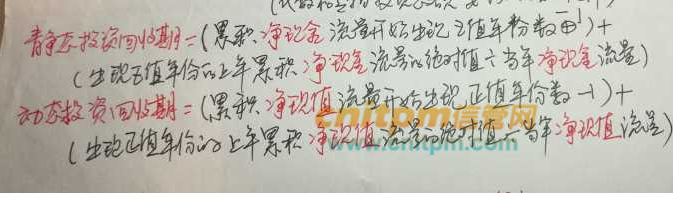 静态投资回收期=(累积净现金流量开始出现正值年份数-1)+
(出现正值年份的上年累积净现金流量的绝对值÷当年净现金流量)
动态投资回收期=(累积净现值流量开始出现正值年份数-1)+
(出现正值年份的上年累积净现值流量的绝对值÷当年净现值流量)